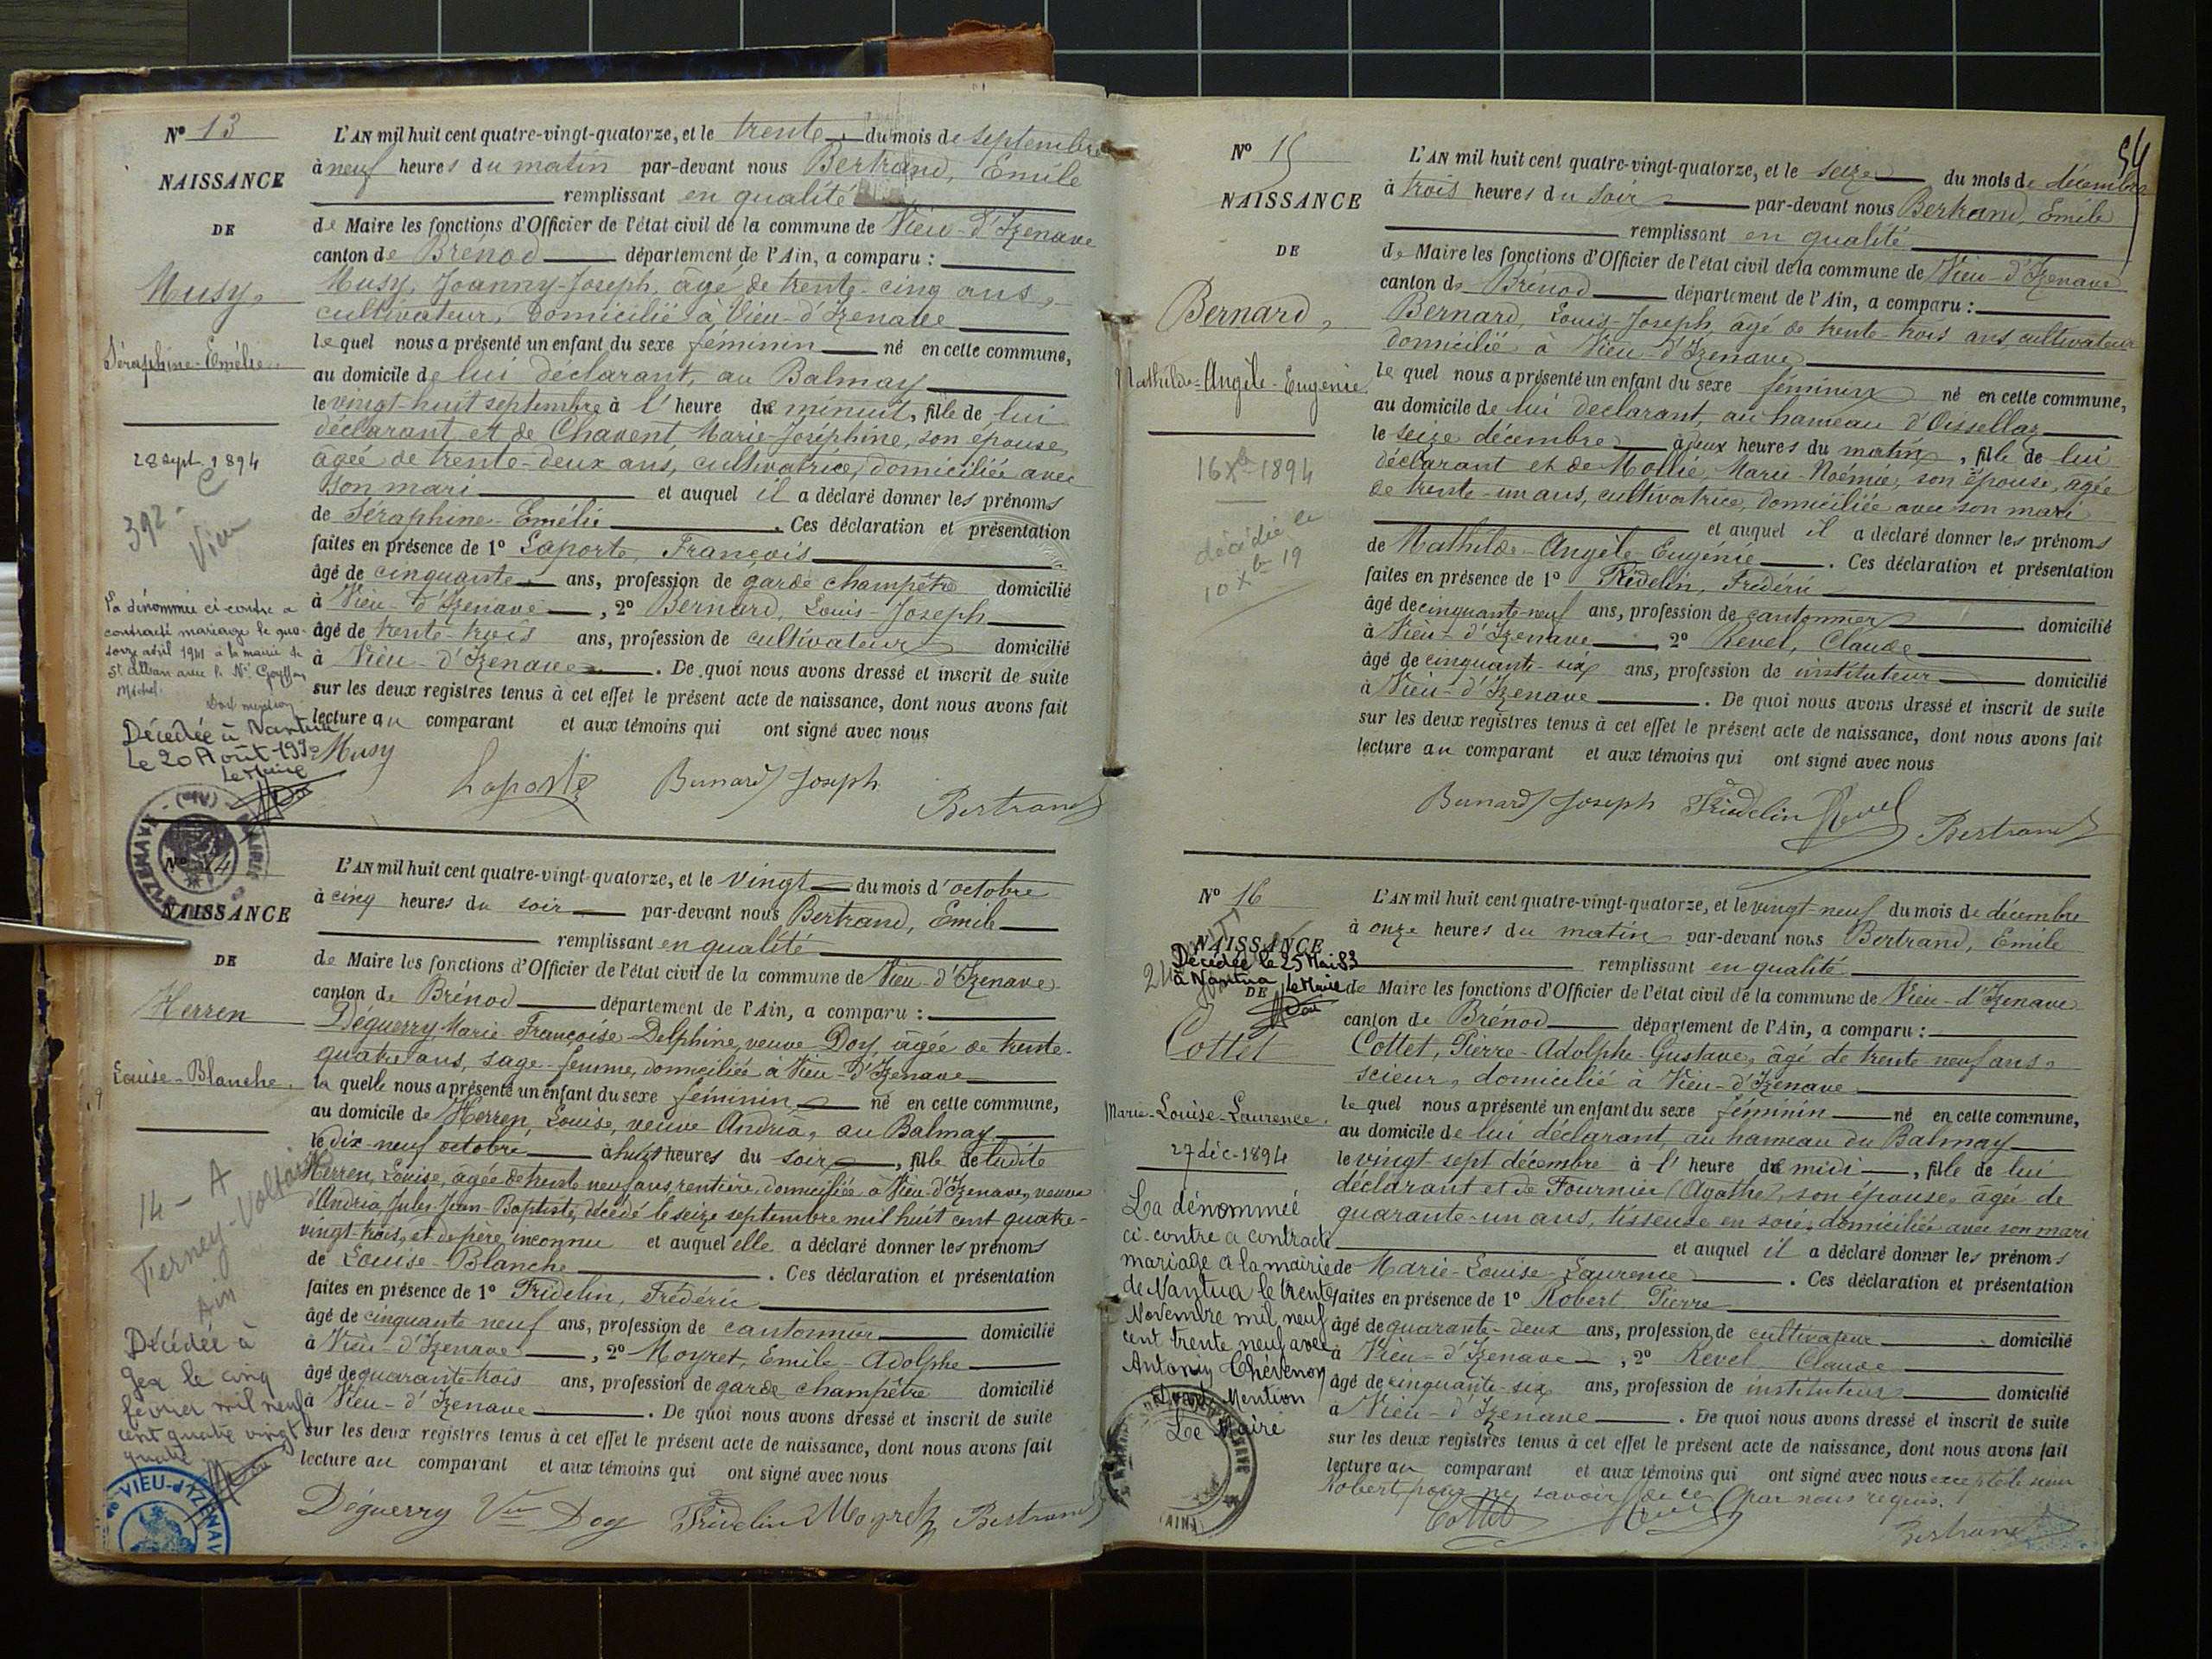 N° 13
NAISSANCE
DE
Musy,
Séraphine-Emélie.
28 sept. 1894
392 -
Vieu
La dénommée ci-contre a
contracté mariage le qua-
torze avril 1941 à la mairie de
St Alban avec le Né
Michel.
Dont mention
Décédée à Nantua
Le 20 Août
Le Maire
L'AN mil huit cent quatre-vingt-quatorze, et le trente du mois de septembre
à neuf heures du matin par-devant nous Bertrand, Emile
remplissant en qualité
de Maire les fonctions d'Officier de l'état civil de la commune de Vieu-d'Izenave
canton de Brénod département de l'Ain, a comparu :
Musy, Joanny-Joseph, âgé de trente-cinq ans,
cultivateur, domicilié à Vieu-d'Izenave
lequel nous a présenté un enfant du sexe féminin né en cette commune,
au domicile de lui déclarant, au Balmay
le vingt-huit septembre à l'heure de minuit, fille de lui
déclarant et de Chavent, Marie-Joséphine, son épouse,
âgée de trente-deux ans, cultivatrice, domiciliée avec
son mari et auquel il a déclaré donner les prénoms
de Séraphine-Emélie. Ces déclaration et présentation
faites en présence de 1° Laporte, François
âgé de cinquante ans, profession de garde champêtre domicilié
à Vieu-d'Izenave, 2° Bernard, Louis-Joseph
âgé de trente-trois ans, profession de cultivateur domicilié
à Vieu-d'Izenave. De quoi nous avons dressé et inscrit de suite
sur les deux registres tenus à cet effet le présent acte de naissance, dont nous avons fait
lecture au comparant et aux témoins qui ont signé avec nous
Musy
Laporte Bernard Joseph
Bertrand
N° 14
NAISSANCE
DE
Herren
Louise-Blanche.
14 - A
Ferney-Voltaire
Ain
Décédée à
Gex le cinq
février mil neuf
cent quatre vingt
quatre
VIEU-D'IZENAVE
L'AN mil huit cent quatre-vingt-quatorze, et le vingt du mois d'octobre
à cinq heures du soir par-devant nous Bertrand, Emile
remplissant en qualité
de Maire les fonctions d'Officier de l'état civil de la commune de Vieu-d'Izenave
canton de Brénod département de l'Ain, a comparu :
Déguerry, Marie Françoise Delphine, veuve Doy, âgée de trente-
quatre ans, sage-femme, domiciliée à Vieu-d'Izenave
la quelle nous a présenté un enfant du sexe féminin né en cette commune,
au domicile de Herren, Louise, veuve Andréa, au Balmay
le dix-neuf octobre à huit heures du soir, fille de ladite
Herren, Louise, âgée de trente-neuf ans, rentière, domiciliée à Vieu-d'Izenave, veuve
d'Andréa, Jules-Jean-Baptiste, décédé le seize septembre mil huit cent quatre-
vingt-trois, et de père inconnu et auquel elle a déclaré donner les prénoms
de Louise-Blanche. Ces déclaration et présentation
faites en présence de 1° Fridelin, Frédéric
âgé de cinquante-neuf ans, profession de cantonnier domicilié
à Vieu-d'Izenave, 2° Moyret, Emile-Adolphe
âgé de quarante-trois ans, profession de garde champêtre domicilié
à Vieu-d'Izenave. De quoi nous avons dressé et inscrit de suite
sur les deux registres tenus à cet effet le présent acte de naissance, dont nous avons fait
lecture au comparant et aux témoins qui ont signé avec nous
Déguerry Vve Doy Fridelin Moyret Bertrand
54
N° 15
NAISSANCE
DE
Bernard,
Mathilde-Angèle-Eugénie
16 Xbre 1894
décédée le
10 Xbre 19
L'AN mil huit cent quatre-vingt-quatorze, et le seize du mois de décembre
à trois heures du soir par-devant nous Bertrand, Emile
remplissant en qualité
de Maire les fonctions d'Officier de l'état civil de la commune de Vieu-d'Izenave
canton de Brénod département de l'Ain, a comparu :
Bernard, Louis-Joseph, âgé de trente-trois ans, cultivateur
domicilié à Vieu-d'Izenave
lequel nous a présenté un enfant du sexe féminin né en cette commune,
au domicile de lui déclarant, au hameau d'Oissellaz
le seize décembre à deux heures du matin, fille de lui
déclarant et de Mollié, Marie-Noémie, son épouse, âgée
de trente-un ans, cultivatrice, domiciliée avec son mari
et auquel il a déclaré donner les prénoms
de Mathilde-Angèle-Eugénie. Ces déclaration et présentation
faites en présence de 1° Fridelin, Frédéric
âgé de cinquante-neuf ans, profession de cantonnier domicilié
à Vieu-d'Izenave, 2° Revel, Claude
âgé de cinquante-six ans, profession de instituteur domicilié
à Vieu-d'Izenave. De quoi nous avons dressé et inscrit de suite
sur les deux registres tenus à cet effet le présent acte de naissance, dont nous avons fait
lecture au comparant et aux témoins qui ont signé avec nous
Bernard Joseph Fridelin Revel Bertrand
N° 16
NAISSANCE
Décédée le 25 Mai 83
à Nantua Le Maire
DE
Cottet
Marie-Louise-Laurence.
27 déc-1894
La dénommée
ci-contre a contracté
mariage à la mairie
de Nantua le trente
Novembre mil neuf
cent trente neuf avec
Antony Chévenon
Dont Mention
Le Maire
L'AN mil huit cent quatre-vingt-quatorze, et le vingt-neuf du mois de décembre
à onze heures du matin par-devant nous Bertrand, Emile
remplissant en qualité
de Maire les fonctions d'Officier de l'état civil de la commune de Vieu-d'Izenave
canton de Brénod département de l'Ain, a comparu :
Cottet, Pierre-Adolphe-Gustave, âgé de trente neuf ans,
scieur, domicilié à Vieu-d'Izenave
lequel nous a présenté un enfant du sexe féminin né en cette commune,
au domicile de lui déclarant, au hameau du Balmay
le vingt-sept décembre à l'heure de midi, fille de lui
déclarant et de Fournier (Agathe), son épouse, âgée de
quarante-un ans, tisseuse en soie, domiciliée avec son mari
et auquel il a déclaré donner les prénoms
de Marie-Louise-Laurence. Ces déclaration et présentation
faites en présence de 1° Robert Pierre
âgé de quarante-deux ans, profession de cultivateur domicilié
à Vieu-d'Izenave, 2° Revel Claude
âgé de cinquante-six ans, profession de instituteur domicilié
à Vieu-d'Izenave. De quoi nous avons dressé et inscrit de suite
sur les deux registres tenus à cet effet le présent acte de naissance, dont nous avons fait
lecture au comparant et aux témoins qui ont signé avec nous excepté le sieur
Robert pour ne savoir de ce par nous requis.
Cottet Revel
Bertrand